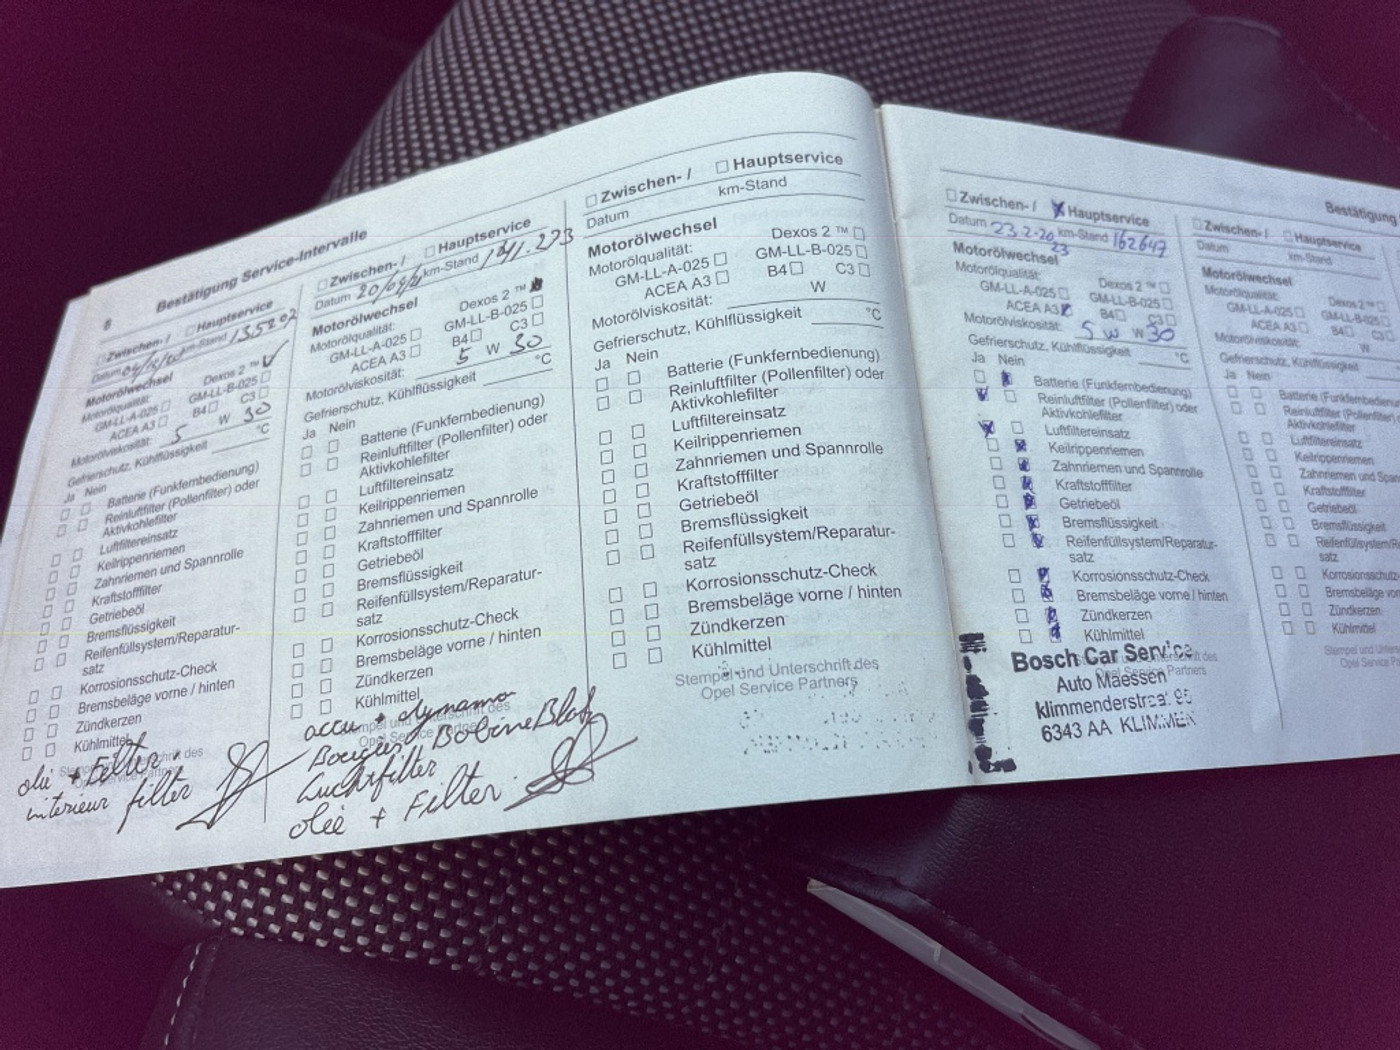 8
Bestätigung Service-Intervalle
Zwischen- / Hauptservice
Datum km-Stand
Motorölwechsel
Motorölqualität: Dexos 2 ™
GM-LL-A-025 GM-LL-B-025
ACEA A3 B4 C3
Motorölviskosität: 5 W 30
Gefrierschutz, Kühlflüssigkeit °C
Ja Nein
Batterie (Funkfernbedienung)
Reinluftfilter (Pollenfilter) oder
Aktivkohlefilter
Luftfiltereinsatz
Keilrippenriemen
Zahnriemen und Spannrolle
Kraftstofffilter
Getriebeöl
Bremsflüssigkeit
Reifenfüllsystem/Reparatur-
satz
Korrosionsschutz-Check
Bremsbeläge vorne / hinten
Zündkerzen
Kühlmittel
olie + Filter
interieur filter
Zwischen- / Hauptservice
Datum km-Stand 141.273
Motorölwechsel
Motorölqualität: Dexos 2 ™
GM-LL-A-025 GM-LL-B-025
ACEA A3 B4 C3
Motorölviskosität: 5 W 30
Gefrierschutz, Kühlflüssigkeit °C
Ja Nein
Batterie (Funkfernbedienung)
Reinluftfilter (Pollenfilter) oder
Aktivkohlefilter
Luftfiltereinsatz
Keilrippenriemen
Zahnriemen und Spannrolle
Kraftstofffilter
Getriebeöl
Bremsflüssigkeit
Reifenfüllsystem/Reparatur-
satz
Korrosionsschutz-Check
Bremsbeläge vorne / hinten
Zündkerzen
Kühlmittel
accu + dynamo
Bougies, Bobine Blok
Luchtfilter
olie + Filter
Zwischen- / Hauptservice
Datum km-Stand
Motorölwechsel
Motorölqualität: Dexos 2 ™
GM-LL-A-025 GM-LL-B-025
ACEA A3 B4 C3
Motorölviskosität: W
Gefrierschutz, Kühlflüssigkeit °C
Ja Nein
Batterie (Funkfernbedienung)
Reinluftfilter (Pollenfilter) oder
Aktivkohlefilter
Luftfiltereinsatz
Keilrippenriemen
Zahnriemen und Spannrolle
Kraftstofffilter
Getriebeöl
Bremsflüssigkeit
Reifenfüllsystem/Reparatur-
satz
Korrosionsschutz-Check
Bremsbeläge vorne / hinten
Zündkerzen
Kühlmittel
Stempel und Unterschrift des
Opel Service Partners
Zwischen- / Hauptservice
Datum 23-2-2023 km-Stand 162647
Motorölwechsel
Motorölqualität: Dexos 2 ™
GM-LL-A-025 GM-LL-B-025
ACEA A3 B4 C3
Motorölviskosität: 5 W W 30
Gefrierschutz, Kühlflüssigkeit °C
Ja Nein
Batterie (Funkfernbedienung)
Reinluftfilter (Pollenfilter) oder
Aktivkohlefilter
Luftfiltereinsatz
Keilrippenriemen
Zahnriemen und Spannrolle
Kraftstofffilter
Getriebeöl
Bremsflüssigkeit
Reifenfüllsystem/Reparatur-
satz
Korrosionsschutz-Check
Bremsbeläge vorne / hinten
Zündkerzen
Kühlmittel
Bosch Car Service
Auto Maessen
klimmenderstraat
6343 AA KLIMMEN
Zwischen- / Hauptservice
Datum km-Stand
Motorölwechsel
Motorölqualität: Dexos 2 ™
GM-LL-A-025 GM-LL-B-025
ACEA A3 B4
Motorölviskosität: W
Gefrierschutz, Kühlflüssigkeit
Ja Nein
Reinluftfilter (Pollenfilter)
Aktivkohlefilter
Luftfiltereinsatz
Keilrippenriemen
Zahnriemen und
Kraftstofffilter
Getriebeöl
Bremsflüssigkeit
satz
Bremsbeläge
Zündkerzen
Kühlmittel
Stempel und
Opel Service